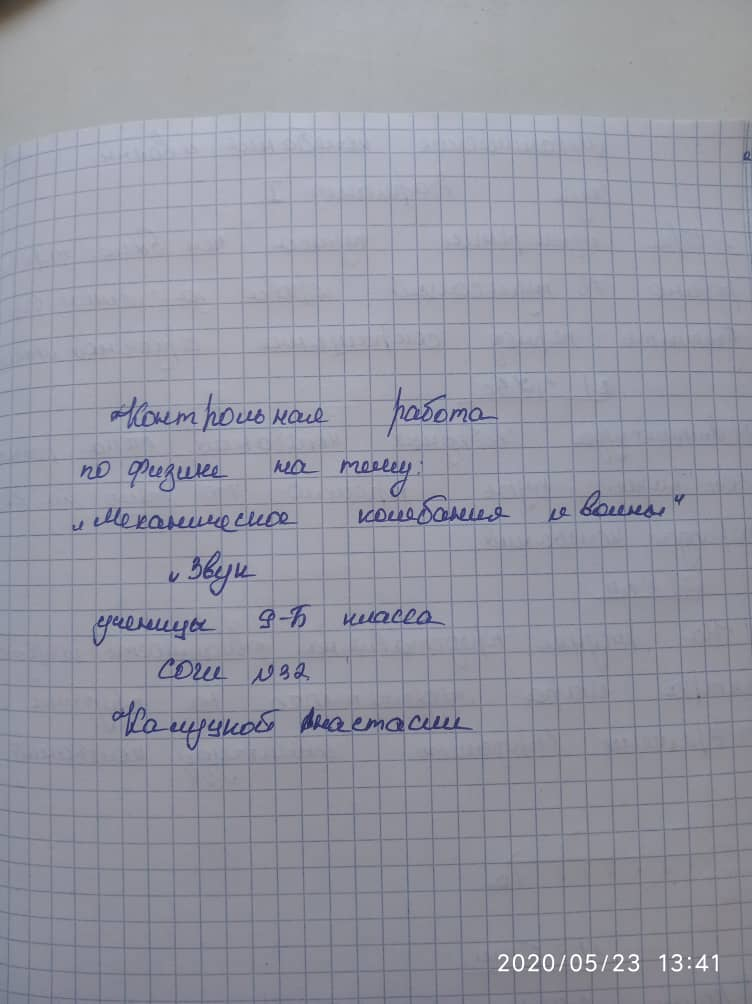 Контрольная работа
по физике на тему:
„Механическое колебания и волны"
„Звук
ученицы 9-Б класса
СОШ №32
Калуцкой Анастасии
2020/05/23 13:41